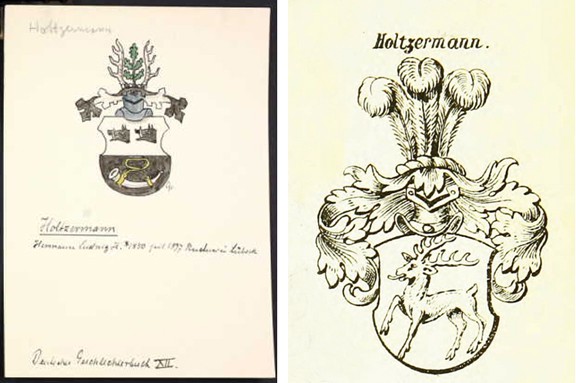 Holtzermann
Holtzermann
Hermann Ludwig H. * 1830 seit 1877 in Lübeck
Deutsches Geschlechterbuch XII.
Holtzermann.